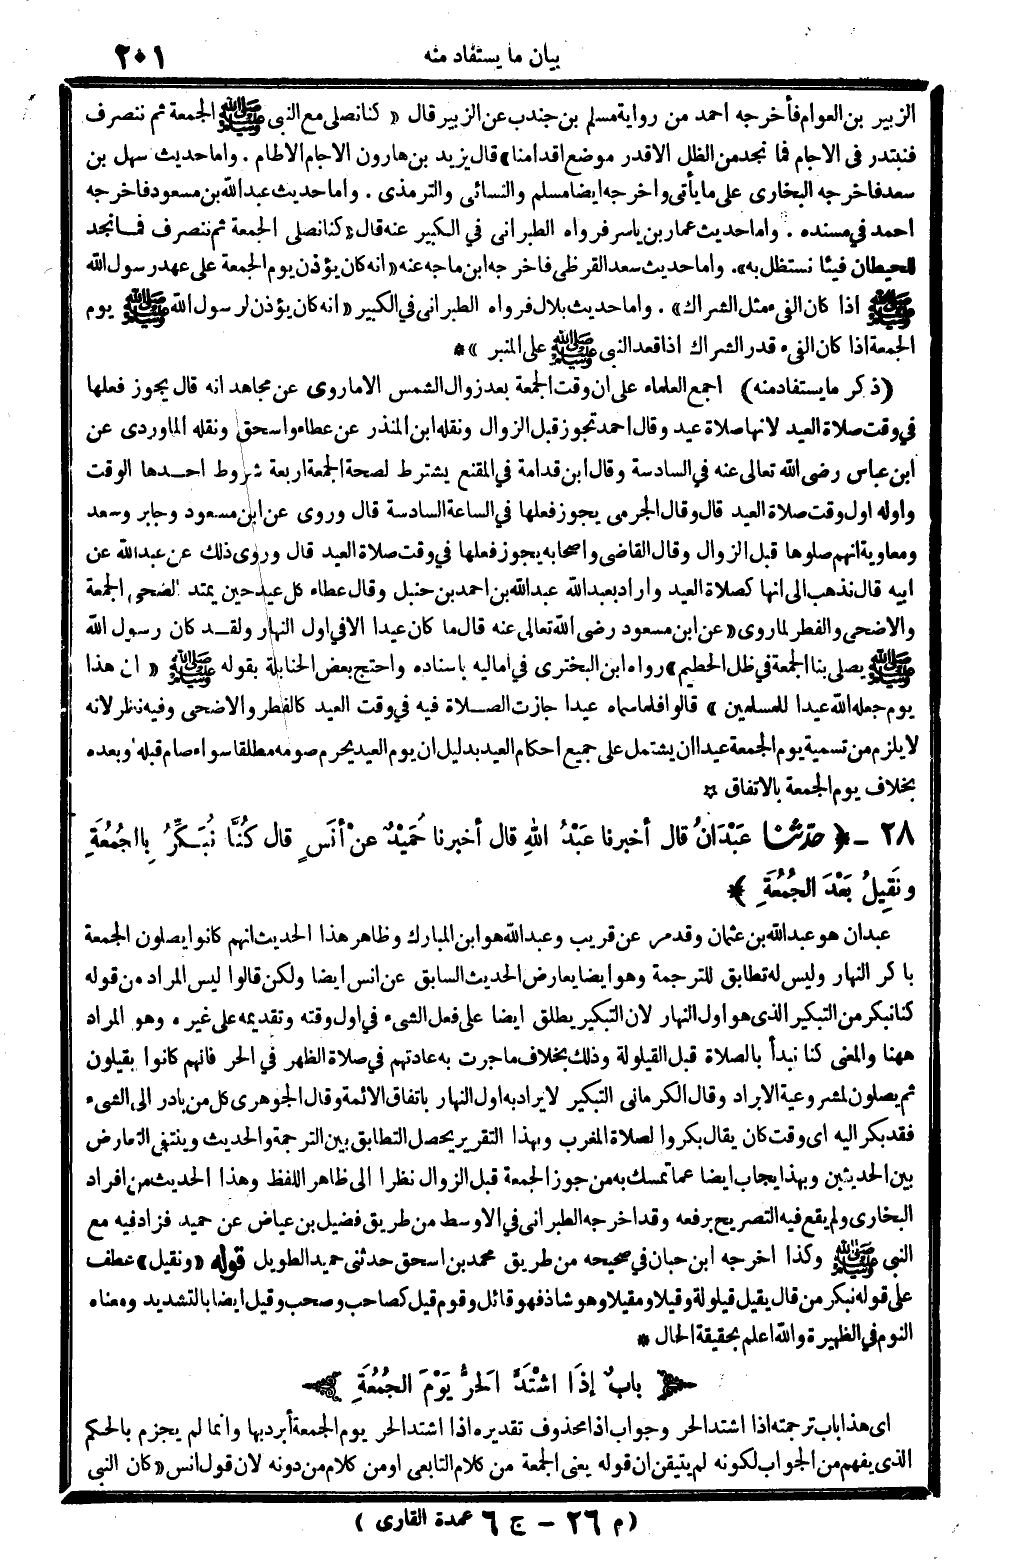 بيان ما يستفاد منه
٢٠١
الزبير بن العوام فأخرجه احمد من رواية مسلم بن جندب عن الزبير قال « كنا نصلى مع النبى ﷺ الجمعة ثم ننصرف
فنبتدر فى الاجام فما نجد من الظل الا قدر موضع اقدامنا » قال يزيد بن هارون الاجام الاطام . واما حديث سهل بن
سعد فاخرجه البخارى على ما يأتى واخرجه ايضا مسلم والنسائى والترمذى . واما حديث عبد الله بن مسعود فاخرجه
احمد في مسنده . واما حديث عمار بن ياسر فرواه الطبرانى في الكبير عنه قال « كنا نصلى الجمعة ثم ننصرف فما نجد
للحيطان فيئا نستظل به » . واما حديث سعد القرظى فاخرجه ابن ماجه عنه « انه كان يؤذن يوم الجمعة على عهد رسول الله
ﷺ اذا كان الفىء مثل الشراك » . واما حديث بلال فرواه الطبرانى في الكبير « انه كان يؤذن لرسول الله ﷺ يوم
الجمعة اذا كان الفىء قدر الشراك اذا قعد النبى ﷺ على المنبر » *
( ذكر ما يستفاد منه ) اجمع العلماء على ان وقت الجمعة بعد زوال الشمس الا ما روى عن مجاهد انه قال يجوز فعلها
في وقت صلاة العيد لانها صلاة عيد وقال احمد تجوز قبل الزوال ونقله ابن المنذر عن عطاء واسحق ونقله الماوردى عن
ابن عباس رضى الله تعالى عنه في السادسة وقال ابن قدامة في المقنع يشترط لصحة الجمعة اربعة شروط احدها الوقت
واوله اول وقت صلاة العيد قال وقال الجرمى يجوز فعلها في الساعة السادسة قال وروى عن ابن مسعود وجابر وسعد
ومعاوية انهم صلوها قبل الزوال وقال القاضى واصحابه يجوز فعلها في وقت صلاة العيد قال وروى ذلك عن عبد الله عن
ابيه قال نذهب الى انها كصلاة العيد واراد بعبد الله عبد الله بن احمد بن حنبل وقال عطاء كل عيد حين يمتد الضحى الجمعة
والاضحى والفطر لما روى « عن ابن مسعود رضى الله تعالى عنه قال ما كان عيدا الا في اول النهار ولقد كان رسول الله
ﷺ يصلى بنا الجمعة في ظل الحطيم » رواه ابن البخترى في اماليه باسناده واحتج بعض الحنابلة بقوله ﷺ « ان هذا
يوم جعله الله عيدا للمسلمين » قالوا فلما سماه عيدا جازت الصلاة فيه في وقت العيد كالفطر والاضحى وفيه نظر لانه
لا يلزم من تسمية يوم الجمعة عيدا ان يشتمل على جميع احكام العيد بدليل ان يوم العيد يحرم صومه مطلقا سواء صام قبله او بعده
بخلاف يوم الجمعة بالاتفاق *
٢٨ - ﴿ حَدَّثَنَا عَبْدَانُ قال أخبرنا عَبْدُ اللهِ قال أخبرنا حُمَيْدٌ عنْ أنَسٍ قال كُنَّا نُبَكِّرُ بِالجُمُعَةِ
ونَقِيلُ بَعْدَ الجُمُعَةِ ﴾ *
عبدان هو عبد الله بن عثمان وقد مر عن قريب وعبد الله هو ابن المبارك وظاهر هذا الحديث انهم كانوا يصلون الجمعة
باكر النهار وليس له تطابق للترجمة وهو ايضا يعارض الحديث السابق عن انس ايضا ولكن قالوا ليس المراد من قوله
كنا نبكر من التبكير الذى هو اول النهار لان التبكير يطلق ايضا على فعل الشىء في اول وقته وتقديمه على غيره وهو المراد
ههنا والمعنى كنا نبدأ بالصلاة قبل القيلولة وذلك بخلاف ما جرت به عادتهم في صلاة الظهر في الحر فانهم كانوا يقيلون
ثم يصلون لمشروعية الابراد وقال الكرمانى التبكير لا يراد به اول النهار باتفاق الائمة وقال الجوهرى كل من بادر الى الشىء
فقد بكر اليه اى وقت كان يقال بكروا لصلاة المغرب وبهذا التقرير يحصل التطابق بين الترجمة والحديث وينتفى التعارض
بين الحديثين وبهذا يجاب ايضا عما تمسك به من جوز الجمعة قبل الزوال نظرا الى ظاهر اللفظ وهذا الحديث من افراد
البخارى ولم يقع فيه التصريح برفعه وقد اخرجه الطبرانى في الاوسط من طريق فضيل بن عياض عن حميد فزاد فيه مع
النبى ﷺ وكذا اخرجه ابن حبان في صحيحه من طريق محمد بن اسحق حدثنى حميد الطويل قوله « ونقيل » عطف
على قوله نبكر من قال يقيل قيلولة وقيلا ومقيلا وهو شاذ فهو قائل وقوم قيل كصاحب وصحب وقيل ايضا بالتشديد ومعناه
النوم في الظهيرة والله اعلم بحقيقة الحال *
﴿ بابٌ إذَا اشْتَدَّ الحَرُّ يَوْمَ الجُمُعَةِ ﴾
اى هذا باب ترجمته اذا اشتد الحر وجواب اذا محذوف تقديره اذا اشتد الحر يوم الجمعة أبرد بها وانما لم يجزم بالحكم
الذى يفهم من الجواب لكونه لم يتيقن ان قوله يعنى الجمعة من كلام التابعى او من كلام من دونه لان قول انس « كان النبى
( م ٢٦ - ج ٦ عمدة القارى )